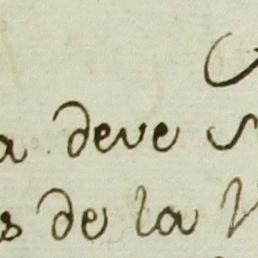 a deve
s de la